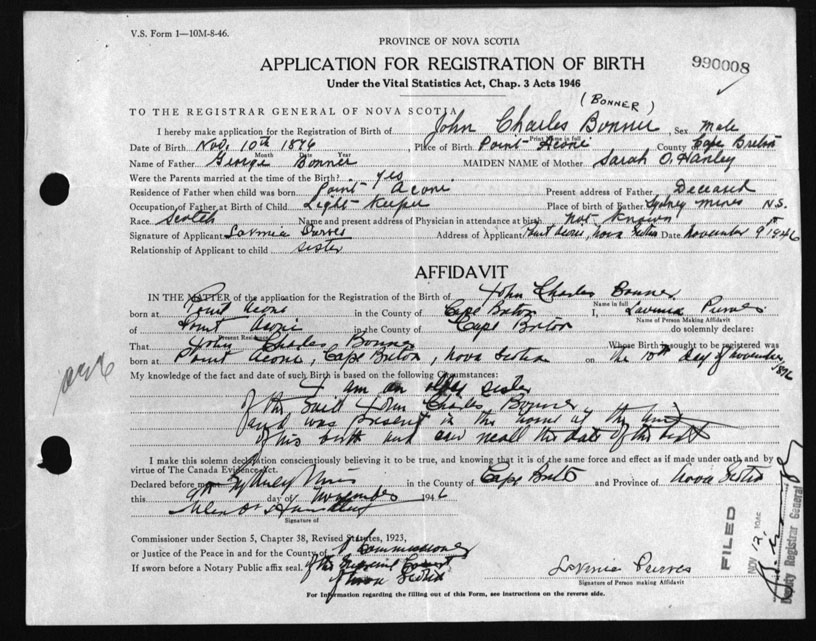 V.S. Form 1—10M-8-46.
PROVINCE OF NOVA SCOTIA
APPLICATION FOR REGISTRATION OF BIRTH
990008
Under the Vital Statistics Act, Chap. 3 Acts 1946
(BONNER)
TO THE REGISTRAR GENERAL OF NOVA SCOTIA
I hereby make application for the Registration of Birth of John Charles Bonner Sex Male
Print Name in full
Date of Birth Nov. 10th 1876 Place of Birth Point Aconi County of Cape Breton
Month Date Year
Name of Father George Bonner MAIDEN NAME of Mother Sarah O. Hanley
Were the Parents married at the time of the Birth? Yes
Residence of Father when child was born Point Aconi Present address of Father Deceased
Occupation of Father at Birth of Child Light Keeper Place of birth of Father Sydney mines N.S.
Race Scotch Name and present address of Physician in attendance at birth not known
Signature of Applicant Lavinia Purves Address of Applicant Point Aconi, Nova Scotia Date November 9 1946
Relationship of Applicant to child sister
AFFIDAVIT
IN THE MATTER of the application for the Registration of Birth of John Charles Bonner
Name in full
born at Point Aconi in the County of Cape Breton I, Lavinia Purves
Name of Person Making Affidavit
of Point Aconi in the County of Cape Breton do solemnly declare:
Present Residence
That John Charles Bonner Whose Birth is sought to be registered was
born at Point Aconi, Cape Breton, Nova Scotia on the 10th day of November, 1876
My knowledge of the fact and date of such Birth is based on the following Circumstances:
I am an older sister
of the said John Charles Bonner
and was present in the home at the time
of his birth and can recall the date of the birth
I make this solemn declaration conscientiously believing it to be true, and knowing that it is of the same force and effect as if made under oath and by
virtue of The Canada Evidence Act.
Declared before me at Sydney Mines in the County of Cape Breton and Province of Nova Scotia
this 9th day of November 1946
Signature of
Commissioner under Section 5, Chapter 38, Revised Statutes, 1923,
or Justice of the Peace in and for the County of A Commissioner
If sworn before a Notary Public affix seal. of the Supreme Court
of Nova Scotia
Lavinia Purves
Signature of Person making Affidavit
For Information regarding the filling out of this Form, see instructions on the reverse side.
FILED
NOV 12 1946
Deputy Registrar General